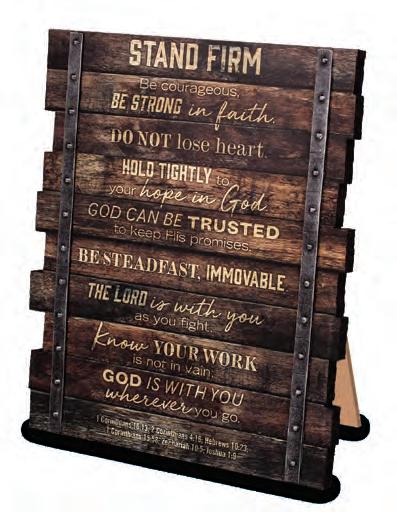 STAND FIRM
Be courageous,
BE STRONG in faith.
DO NOT lose heart.
HOLD TIGHTLY to
your hope in God.
GOD CAN BE TRUSTED
to keep His promises.
BE STEADFAST, IMMOVABLE.
THE LORD is with you
as you fight.
Know YOUR WORK
is not in vain;
GOD IS WITH YOU
wherever you go.
1 Corinthians 16:13; 2 Corinthians 4:16; Hebrews 10:23;
1 Corinthians 15:58; Zechariah 10:5; Joshua 1:9